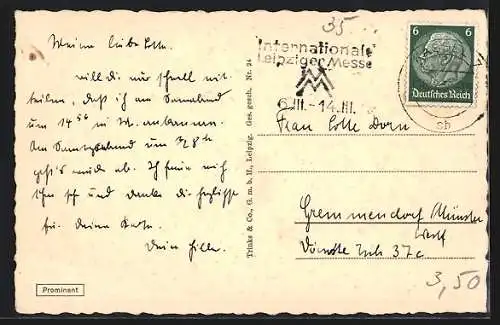 35.
Meine liebe Lotte.
will dir nur schnell mit-
teilen, daß ich am Sonnabend
um 14⁵⁶ in M. ankomme.
Am Sonntagabend um
geht's wieder ab. Ich freue mich
schon sehr und danke dir herzlichst
für Deine Karte.
Dein
Prominent
Trinks & Co., G. m. b. H., Leipzig. Ges. gesch. Nr. 24
Internationale
Leipziger Messe
M M
6.III.-14.III.
6 6
Deutsches Reich
sb
Frau Lotte Dorn
Gremmendorf Münster
Westf
37c
3,50